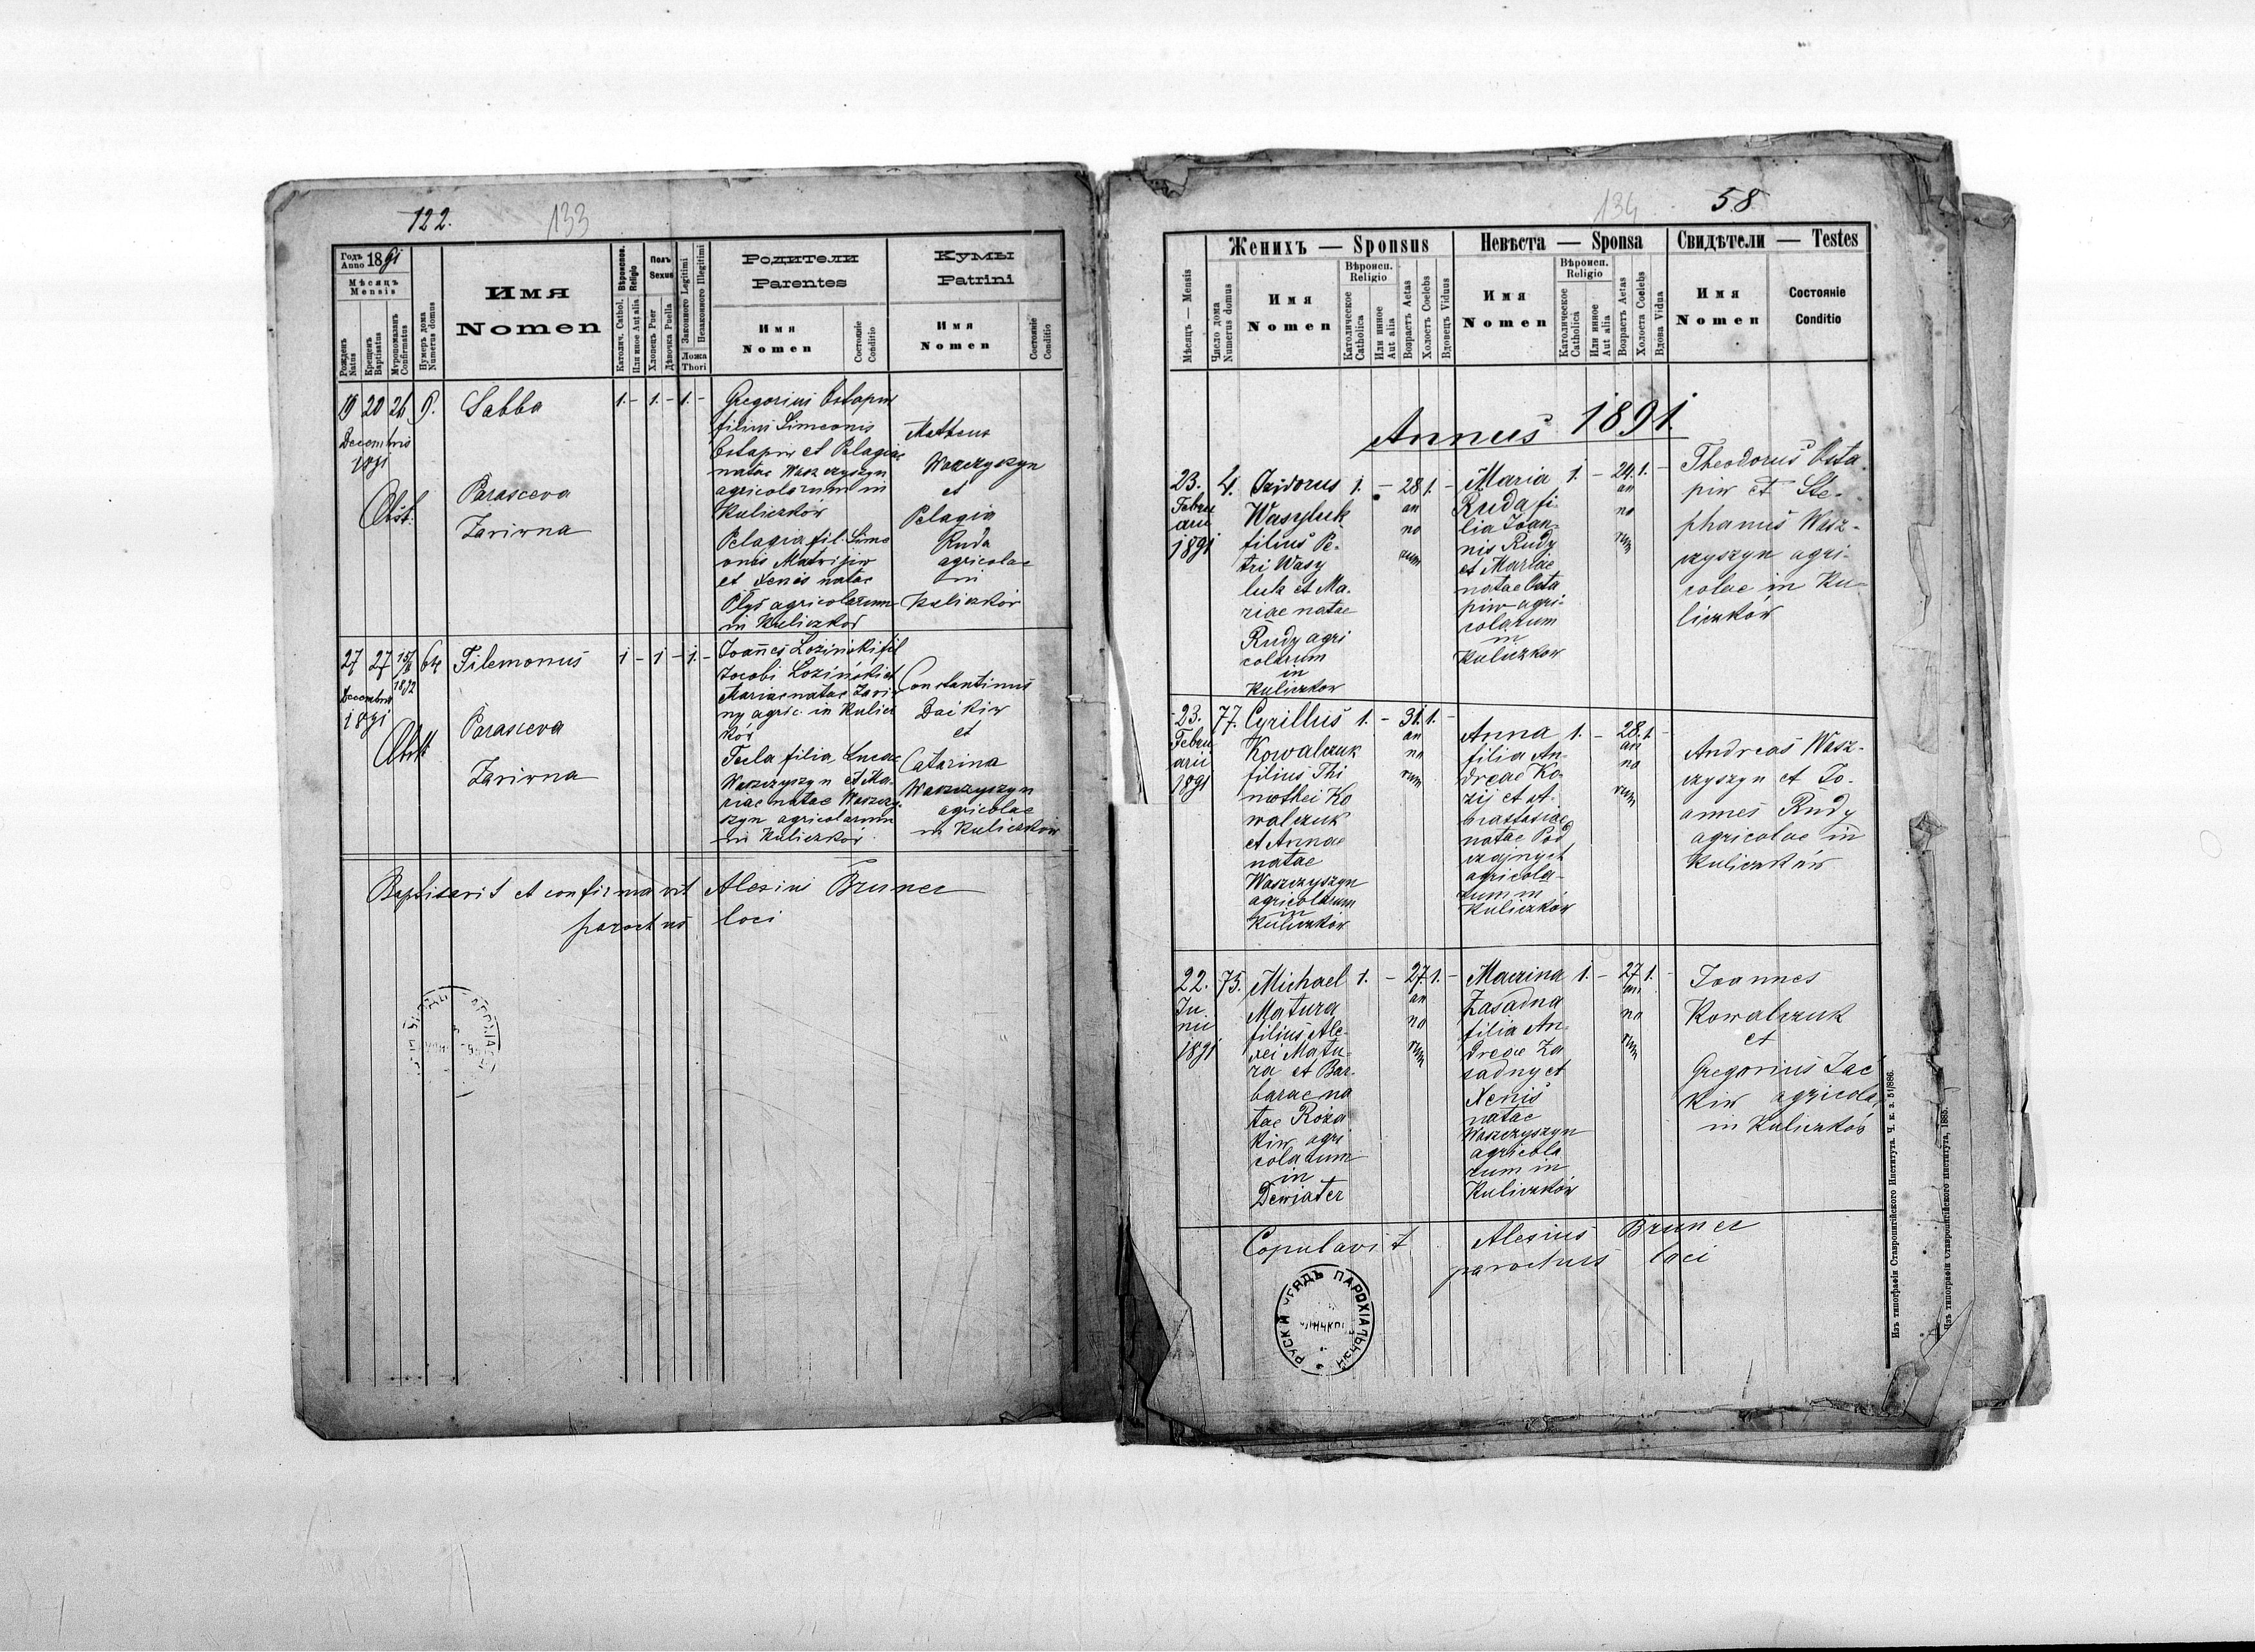 122.
133
Годъ
Anno 1891
Мѣсяцъ
Mensis
Рожденъ
Natus
Крещенъ
Baptisatus
Мѵропомазанъ
Confirmatus
Нумеръ дома
Numerus domus
Имя
Nomen
Вѣроиспов.
Religio
Католич. Cathol.
Или иное Aut alia
Полъ
Sexus
Хлопецъ Puer
Дѣвочка Puella
Законного Legitimi
Незаконного Illegitimi
Ложа
Thori
Родители
Parentes
Имя
Nomen
Состояніе
Conditio
Кумы
Patrini
Имя
Nomen
Состояніе
Conditio
19 20 26 9. Sabba 1. - 1. - 1. -
Decembris
1891
Obst.
Parasceva
Zarivna
Gregorius Ostapiw
filius Simeonis
Ostapiw et Pelagiae
natae Waszczyszyn
agricolarum in
Kuliczków
Pelagia fil. Sime
onis Matwijiw
et Xenis natae
Ołyś agricolarum
in Kuliczków
Mattheus
Waszczyszyn
et
Pelagia
Ruda
agricolae
in
Kuliczków
27 27 64 Filemonus 1 - 1 - 1. -
1892
Decembris
1891
Obst.
Parasceva
Zarivna
Joannes Łoziński fil
Jacobi Łoziński et
Mariae natae Zariw
ny agric. in Kulicz
ków
Tecla filia Lucae
Waszczyszyn et Ma-
riae natae Waszczy-
szyn agricolarum
in Kuliczków
Constantinus
Daćkiw
et
Catarina
Waszczyszyn
agricolae
in Kuliczków
Baptisavit et confirmavit Alexius Bruner
parochus loci
134
58
Женихъ — Sponsus
Невѣста — Sponsa
Свидѣтели — Testes
Мѣсяцъ — Mensis
Число дома
Numerus domus
Имя
Nomen
Вѣроисп.
Religio
Католическое
Catholica
Или иное
Aut alia
Возрастъ Aetas
Холостъ Coelebs
Вдовецъ Viduus
Имя
Nomen
Вѣроисп.
Religio
Католическое
Catholica
Или иное
Aut alia
Возрастъ Aetas
Холоста Coelebs
Вдова Vidua
Имя
Nomen
Состояніе
Conditio
Annus 1891.
23.
Febru
arii
1891
4.
Izidorus
Wasyluk
filius Pe-
tri Wasy
luk et Ma-
riae natae
Rudy agri
colarum
in
Kuliczkow
1. - 28 1. -
an
no
rum
Maria
Ruda fi-
lia Joan-
nis Rudy
et Mariae
natae Osta
piw agri-
colarum
in
Kuliczkow
1. - 24. 1. -
an
no
rum
Theodorus Osta
piw et Ste-
phanus Wasz-
czyszyn agri-
colae in Ku-
liczków
23.
Febru
arii
1891
77.
Cyrillus
Kowalczuk
filius Thi
mothei Ko
walczuk
et Annae
natae
Waszczyszyn
agricolarum
in
Kuliczków
1. - 31. 1. -
an
no
rum
Anna
filia An-
dreae Ko-
zij et A-
nastasiae
natae Pod
agricola-
rum in
Kuliczków
1. - 28. 1. -
an
no
rum
Andreas Wasz-
czyszyn et Jo-
annes Rudy
agricolae in
Kuliczków
22.
Ju-
nii
1891
75.
Michael
Matura
filius Ale-
xei Matu-
ra et Bar-
barae na
tae Roza
kiw agri
colarum
in
Dewiater
1. - 27. 1. -
an
no
rum
Macrina
Zasadna
filia An-
dreae Za
sadny et
Xenis
natae
Waszczyszyn
agricola
rum in
Kuliczków
1. - 27. 1. -
an
no
rum
Joannes
Kowalczuk
et
Gregorius Jac
kiw agricolae
in Kuliczków
Copulavit Alexius Bruner
parochus loci
РУСКІЙ УРЯДЪ ПАРОХІАЛЬНЫЙ
Изъ типографіи Ставропигійского Института. Ч. к. з. 51/886.
Изъ типографіи Ставропигійского Института, 1885.